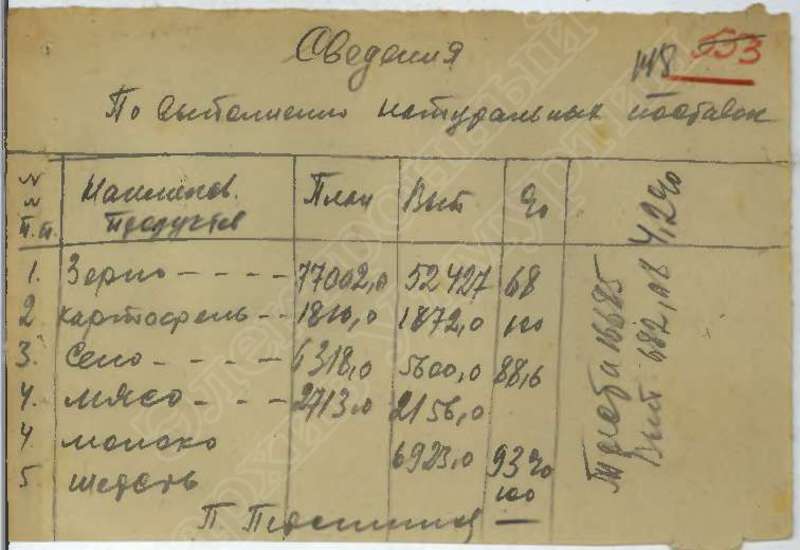 Сведения
148 553
По выполнению натуральных поставок
№ № п.п. Наименов. продуктов План Вып %
1. Зерно - - - - 77002,0 52427 68
2 картофель - - 1810,0 1872,0 100
3. Сено - - - - 6318,0 5600,0 88,6
4. мясо - - - 2713,0 2156,0
4 молоко 6923,0 93%
5 шерсть 100
П.
16685
Вып 682, 4,2%
электронный
архив Удмуртии